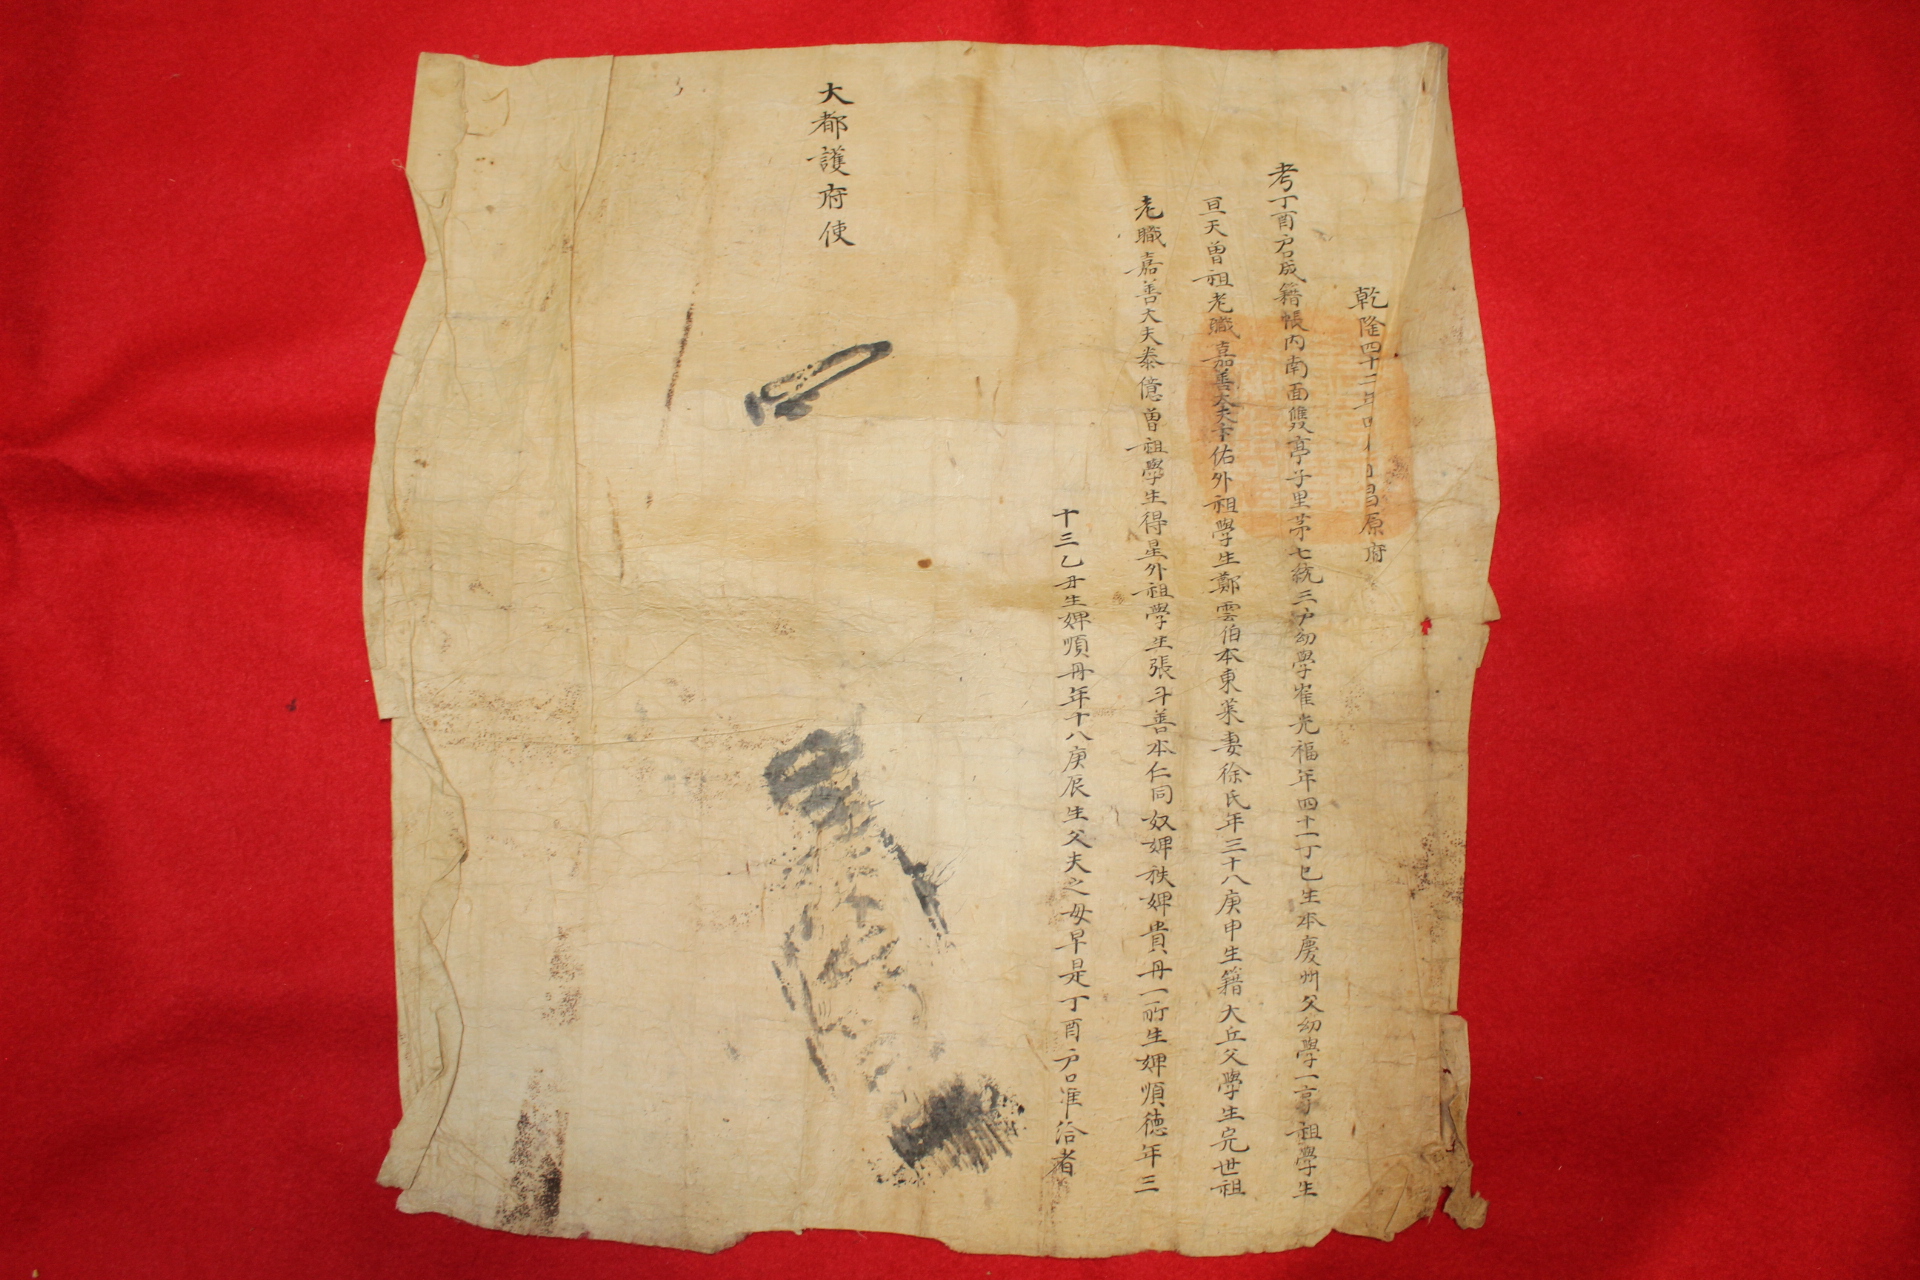 乾隆四十二年 月 日昌原府
考丁酉户口成籍帳內南面雙亭子里苐七統三户幼學崔光福年四十一丁巳生本慶州父幼學一亨祖學生
亘天曽祖老職嘉善大夫卞佑外祖學生鄭雲伯本東萊妻徐氏年三十八庚申生籍大丘父學生完世祖
老職嘉善大夫泰億曽祖學生得星外祖學生張斗善本仁同奴婢秩婢貴丹一所生婢順德年三
十三乙丑生婢順丹年十八庚辰生父夫之母早是丁酉户口准給者
大都護府使